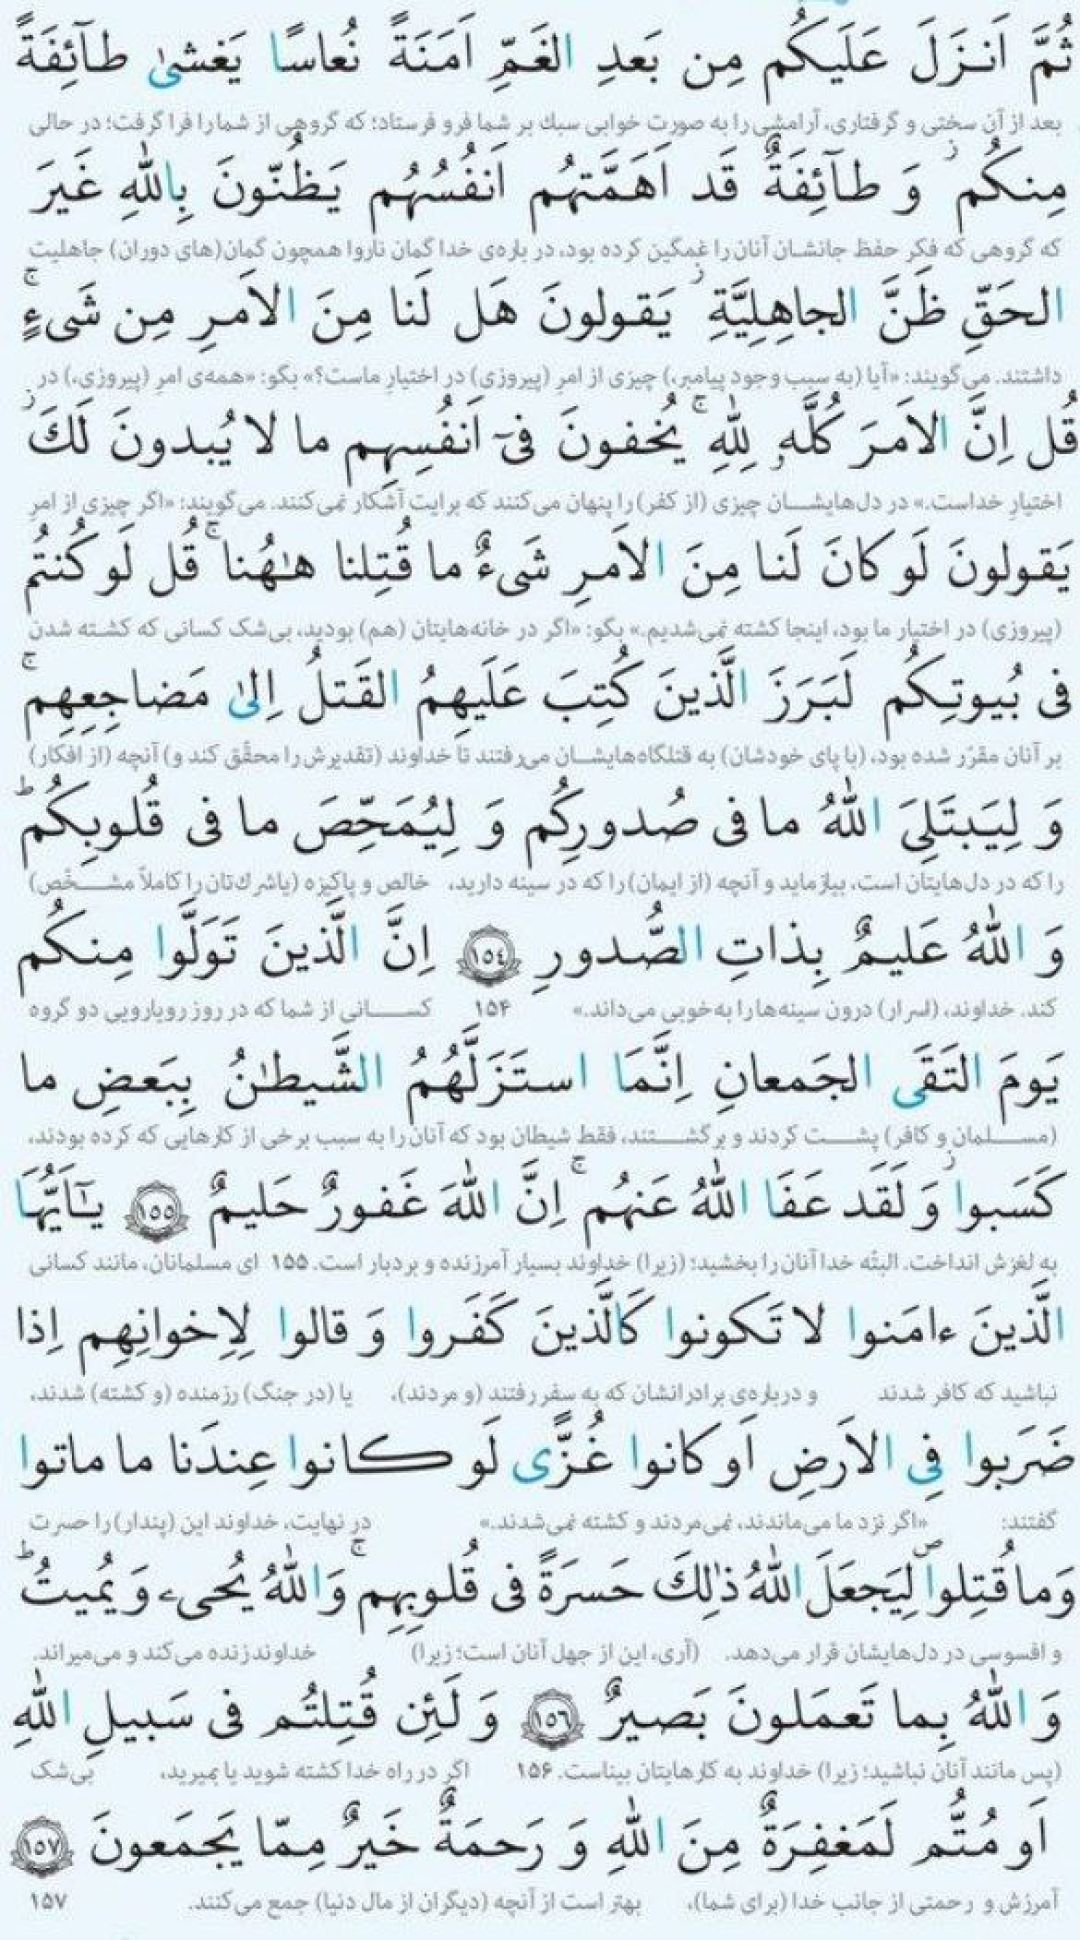 ثُمَّ اَنزَلَ عَلَیکُم مِن بَعدِ الغَمِّ اَمَنَةً نُعاسًا یَغشیٰ طآئِفَةً
بعد از آن سختی و گرفتاری، آرامشی را به صورت خوابی سبك بر شما فرو فرستاد؛ که گروهی از شما را فرا گرفت؛ در حالی
مِنکُم ۖ وَ طآئِفَةٌ قَد اَهَمَّتهُم اَنفُسُهُم یَظُنّونَ بِاللّٰهِ غَیرَ
که گروهی که فکر حفظ جانشان آنان را غمگین کرده بود، در باره‌ی خدا گمان ناروا همچون گمان(های دوران) جاهلیت
الحَقِّ ظَنَّ الجاهِلِیَّةِ ۖ یَقولونَ هَل لَنا مِنَ الاَمرِ مِن شَیءٍ ۚ
داشتند. می‌گویند: «آیا (به سبب وجود پیامبر،) چیزی از امر (پیروزی) در اختیار ماست؟» بگو: «همه‌ی امر (پیروزی،) در
قُل اِنَّ الاَمرَ کُلَّهو لِلّٰهِ ۚ یُخفونَ فیٓ اَنفُسِهِم ما لا یُبدونَ لَكَ ۖ
اختیار خداست.» در دل‌هایشــان چیزی (از کفر) را پنهان می‌کنند که برایت آشکار نمی‌کنند. می‌گویند: «اگر چیزی از امر
یَقولونَ لَو کانَ لَنا مِنَ الاَمرِ شَیءٌ ما قُتِلنا هٰهُنا ۚ قُل لَو کُنتُم
(پیروزی) در اختیار ما بود، اینجا کشته نمی‌شدیم.» بگو: «اگر در خانه‌هایتان (هم) بودید، بی‌شک کسانی که کشته شدن
فی بُیوتِکُم لَبَرَزَ الَّذینَ کُتِبَ عَلَیهِمُ القَتلُ اِلیٰ مَضاجِعِهِم ۚ
بر آنان مقرّر شده بود، (با پای خودشان) به قتلگاه‌هایشــان می‌رفتند تا خداوند (تقدیرش را محقّق کند و) آنچه (از افکار)
وَ لِیَبتَلِیَ اللّٰهُ ما فی صُدورِکُم وَ لِیُمَحِّصَ ما فی قُلوبِکُم ؕ
را که در دل‌هایتان است، بیازماید و آنچه (از ایمان) را که در سینه دارید، خالص و پاکیزه (یا شرك‌تان را کاملاً مشــخّص)
وَ اللّٰهُ عَلیمٌ بِذاتِ الصُّدورِ ﴿١٥٤﴾ اِنَّ الَّذینَ تَوَلَّوا مِنکُم
کند. خداوند، (اسرار) درون سینه‌ها را به‌خوبی می‌داند.» ۱۵۴ کســانی از شما که در روز رویارویی دو گروه
یَومَ التَقَی الجَمعانِ اِنَّمَا استَزَلَّهُمُ الشَّیطٰنُ بِبَعضِ ما
(مســلمان و کافر) پشــت کردند و برگشــتند، فقط شیطان بود که آنان را به سبب برخی از کارهایی که کرده بودند،
کَسَبوا ۖ وَ لَقَد عَفَا اللّٰهُ عَنهُم ۚ اِنَّ اللّٰهَ غَفورٌ حَلیمٌ ﴿١٥٥﴾ یٰٓاَیُّهَا
به لغزش انداخت. البتّه خدا آنان را بخشید؛ (زیرا) خداوند بسیار آمرزنده و بردبار است. ۱۵۵ ای مسلمانان، مانند کسانی
الَّذینَ ءامَنوا لا تَکونوا کَالَّذینَ کَفَروا وَ قالوا لِاِخوانِهِم اِذا
نباشید که کافر شدند و درباره‌ی برادرانشان که به سفر رفتند (و مردند)، یا (در جنگ) رزمنده (و کشته) شدند،
ضَرَبوا فِی الاَرضِ اَو کانوا غُزًّی لَو کانوا عِندَنا ما ماتوا
گفتند: «اگر نزد ما می‌ماندند، نمی‌مردند و کشته نمی‌شدند.» در نهایت، خداوند این (پندار) را حسرت
وَ ما قُتِلوا ۖ لِیَجعَلَ اللّٰهُ ذٰلِكَ حَسرَةً فی قُلوبِهِم ۚ وَاللّٰهُ یُحیی وَ یُمیتُ ؕ
و افسوسی در دل‌هایشان قرار می‌دهد. (آری، این از جهل آنان است؛ زیرا) خداوند زنده می‌کند و می‌میراند.
وَ اللّٰهُ بِما تَعمَلونَ بَصیرٌ ﴿١٥٦﴾ وَ لَئِن قُتِلتُم فی سَبیلِ اللّٰهِ
(پس مانند آنان نباشید؛ زیرا) خداوند به کارهایتان بیناست. ۱۵۶ اگر در راه خدا کشته شوید یا بمیرید، بی‌شک
اَو مُتُّم لَمَغفِرَةٌ مِنَ اللّٰهِ وَ رَحمَةٌ خَیرٌ مِمّا یَجمَعونَ ﴿١٥٧﴾
آمرزش و رحمتی از جانب خدا (برای شما)، بهتر است از آنچه (دیگران از مال دنیا) جمع می‌کنند. ۱۵۷